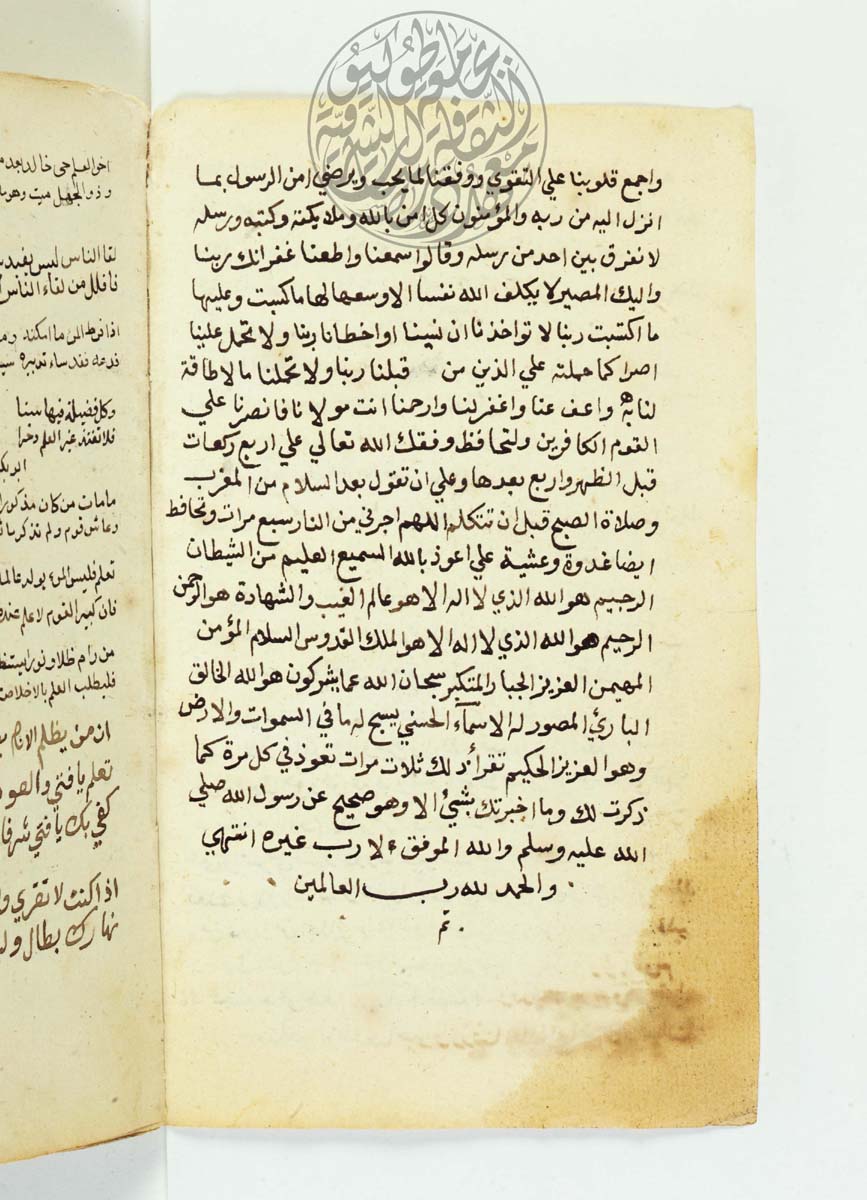 واجمع قلوبنا علي التقوي ووفقنا لما يحب ويرضي امن الرسول بما
انزل اليه من ربه والمؤمنون كل امن بالله وملايكته وكتبه ورسله
لا نفرق بين احد من رسله وقالوا سمعنا واطعنا غفرانك ربنا
واليك المصير لا يكلف الله نفسا الا وسعها لها ما كسبت وعليها
ما اكتسبت ربنا لا تواخذنا ان نسينا او اخطانا ربنا ولا تحمل علينا
اصرا كما حملته علي الذين من قبلنا ربنا ولا تحملنا ما لا طاقة
لنا به واعف عنا واغفر لنا وارحمنا انت مولانا فانصرنا علي
القوم الكافرين ولتحافظ وفقك الله تعالي علي اربع ركعات
قبل الظهر واربع بعدها وعلي ان تقول بعد السلام من المغرب
وصلاة الصبح قبل ان تتكلم اللهم اجرني من النار سبع مرات وتحافظ
ايضا غدوة وعشية علي اعوذ بالله السميع العليم من الشيطان
الرجيم هو الله الذي لا اله الا هو عالم الغيب والشهادة هو الرحمن
الرحيم هو الله الذي لا اله الا هو الملك القدوس السلام المؤمن
المهيمن العزيز الجبار المتكبر سبحان الله عما يشركون هو الله الخالق
الباريء المصور له الاسماء الحسني يسبح له ما في السموات والارض
وهو العزيز الحكيم تقرأ ذلك ثلاث مرات تعوذ في كل مرة كما
ذكرت لك وما اخبرتك بشيء الا وهو صحيح عن رسول الله صلي
الله عليه وسلم والله الموفق لا رب غيره انتهي
والحمد لله رب العالمين
تم
اخو العلم حي خالد بعد
وذو الجهل ميت وهو
لقا الناس ليس يفيد
فاقلل من لقاء الناس
اذا فرط المرء ما امكنه
فدعه فقد ساء تدبيره
وكل فضيلة فيها سنا
فلا تعتد غير العلم ذخرا
ما مات من كان مذكورا
وعاش قوم ولم تذكر
تعلم فليس المرء يولد عالما
فان كبير القوم لا علم عنده
من رام
فليطلب العلم بالاخلاص
ان من يظلم الانام
تعلم يا فتي والعود
كفي بك يا فتي شرفا
اذا كنت لا تقري
نهارك بطال